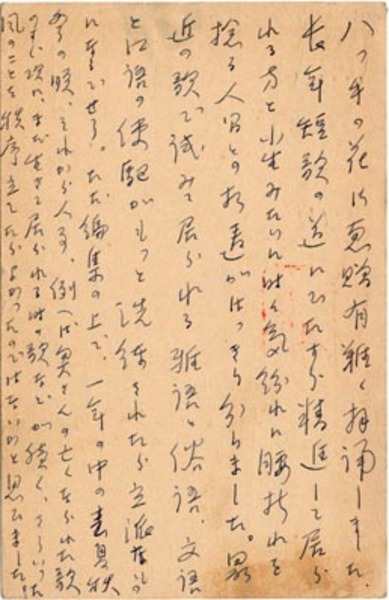 八つ手の花御恵贈有難く拝誦しました。
長年短歌の道にひたすら精進して居ら
れる方と小生みたいに時々気紛れに腰折れを
捻る人間との相違がはっきり分りました。最
近の歌で試みて居られる雅語と俗語、文語
と口語の使駆がもっと洗練されたら立派なもの
になるでせう。ただ編集の上で、一年の中の春夏秋
冬の順、それから人事、例へば奥さんの亡くなられた歌
のすぐ次に、まだ生きて居られる時の歌などが続く、さういった
風のことを秩序立てたらよかったのではないかと思ひました。